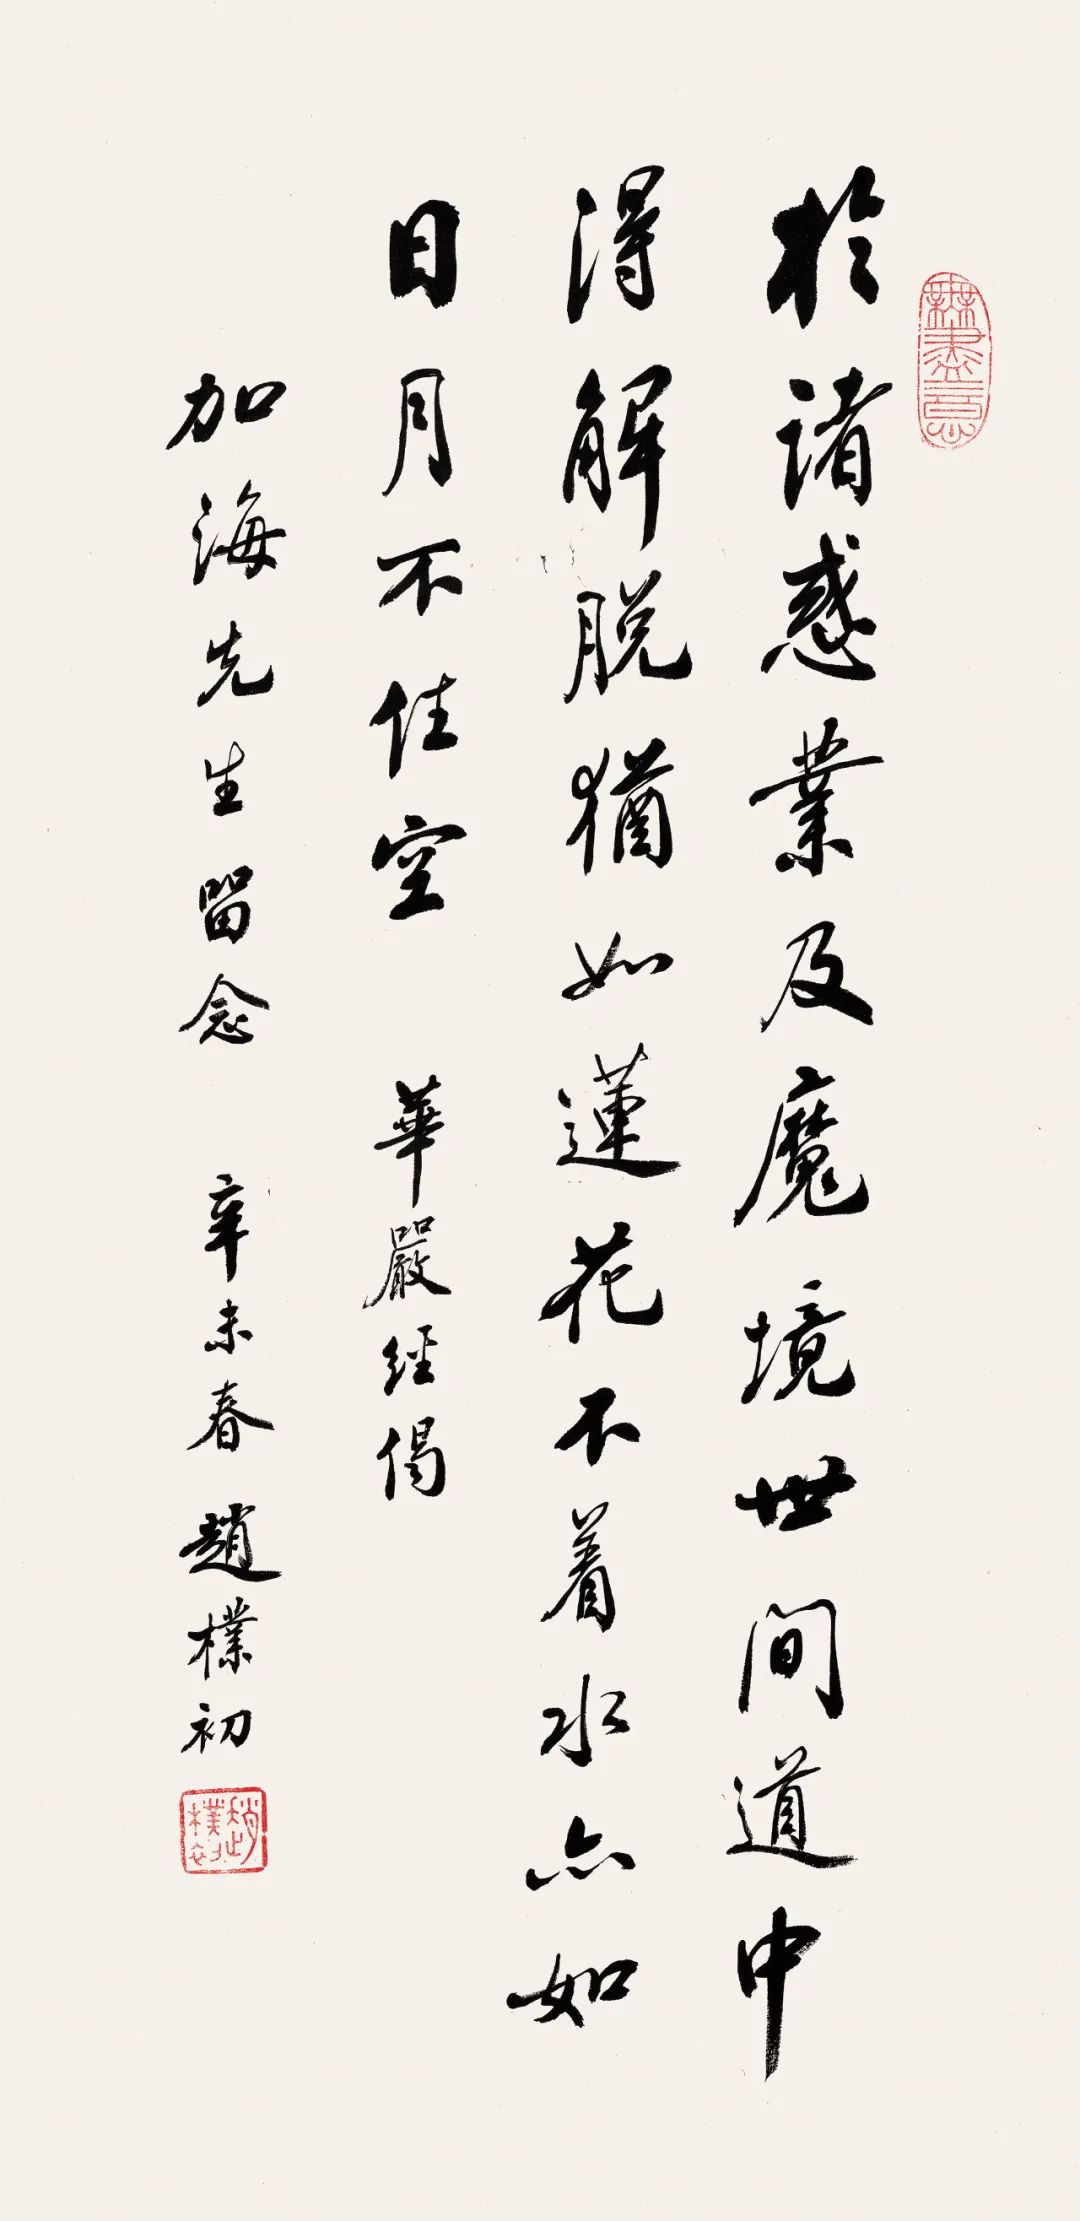 無盡意
於諸惑業及魔境世间道中
得解脱猶如蓮花不着水亦如
日月不住空 華嚴經偈
加海先生留念 辛未春 趙樸初
趙樸初